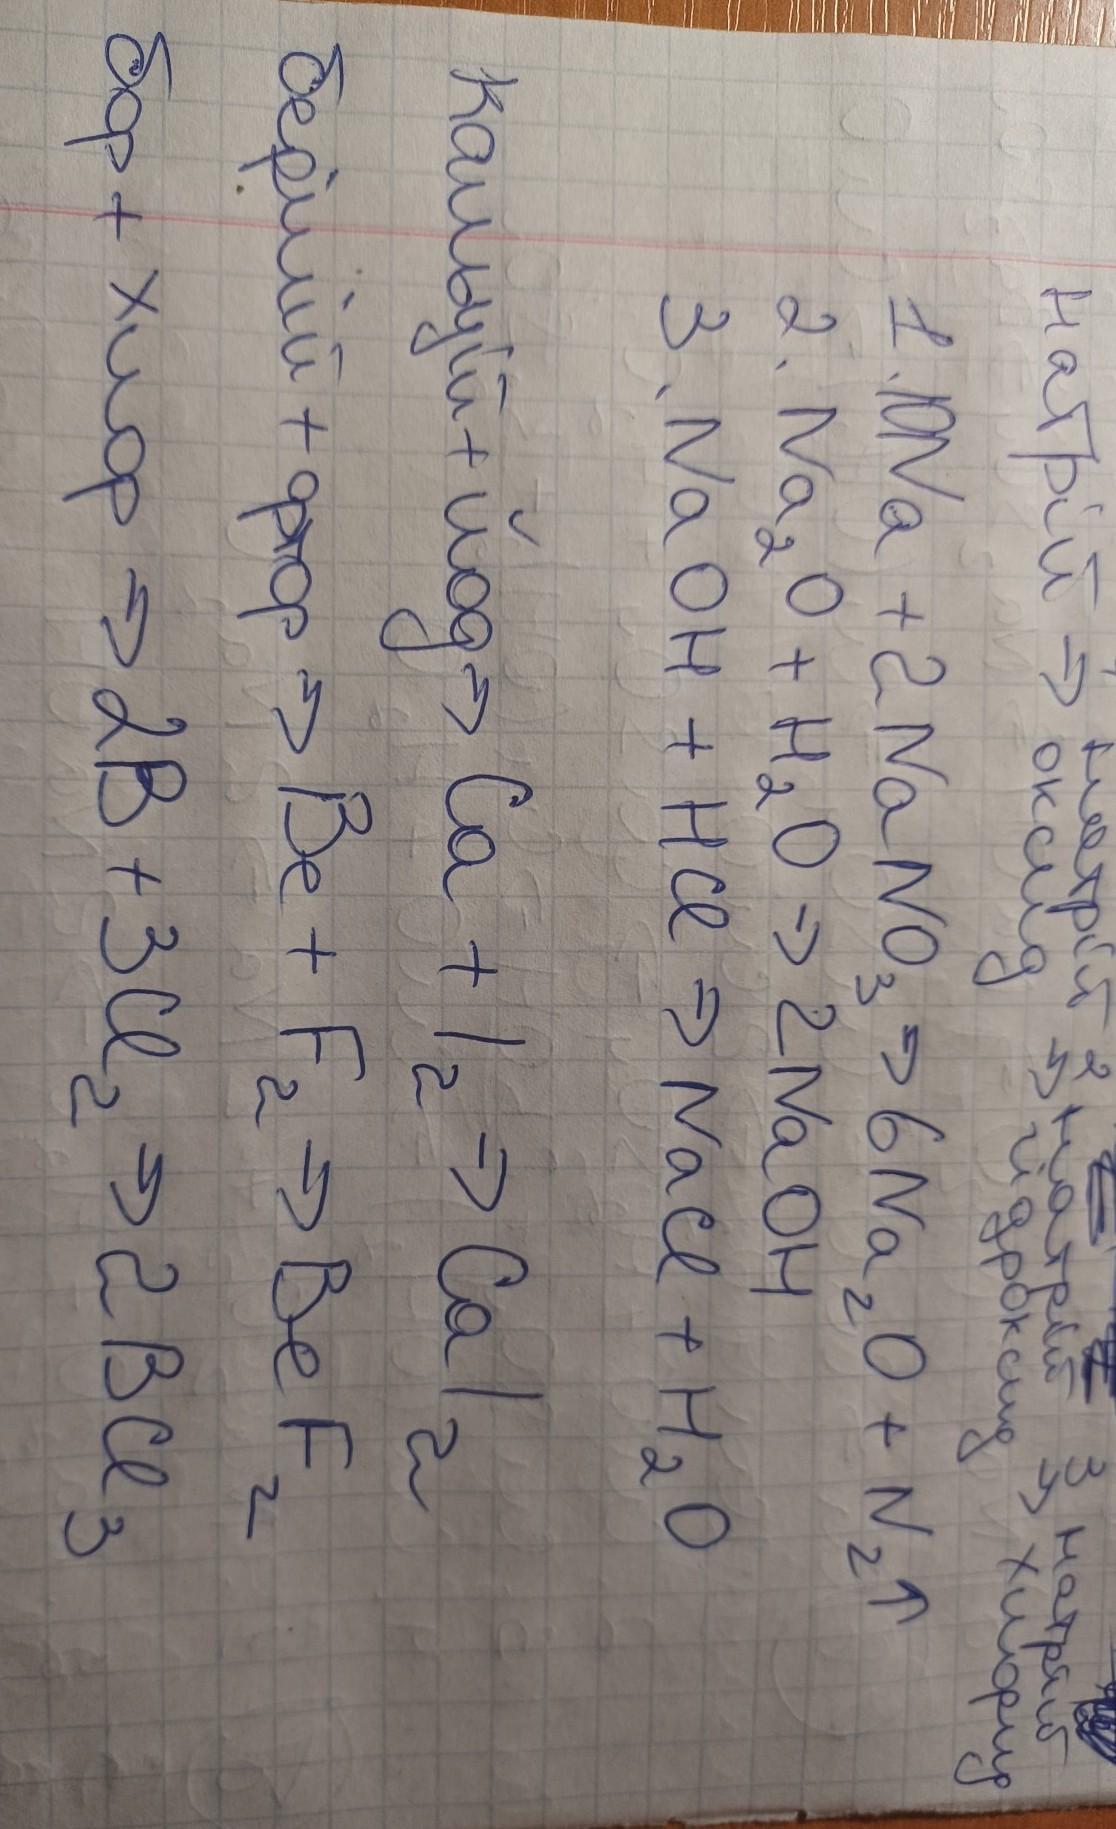 1 2 3
натрій → натрій → натрій → натрій
оксид гідроксид хлорид
1. 10Na + 2NaNO₃ → 6Na₂O + N₂↑
2. Na₂O + H₂O → 2NaOH
3. NaOH + HCl → NaCl + H₂O
Кальцій + йод → Ca + I₂ → CaI₂
берілій + фтор → Be + F₂ → BeF₂
бор + хлор → 2B + 3Cl₂ → 2BCl₃